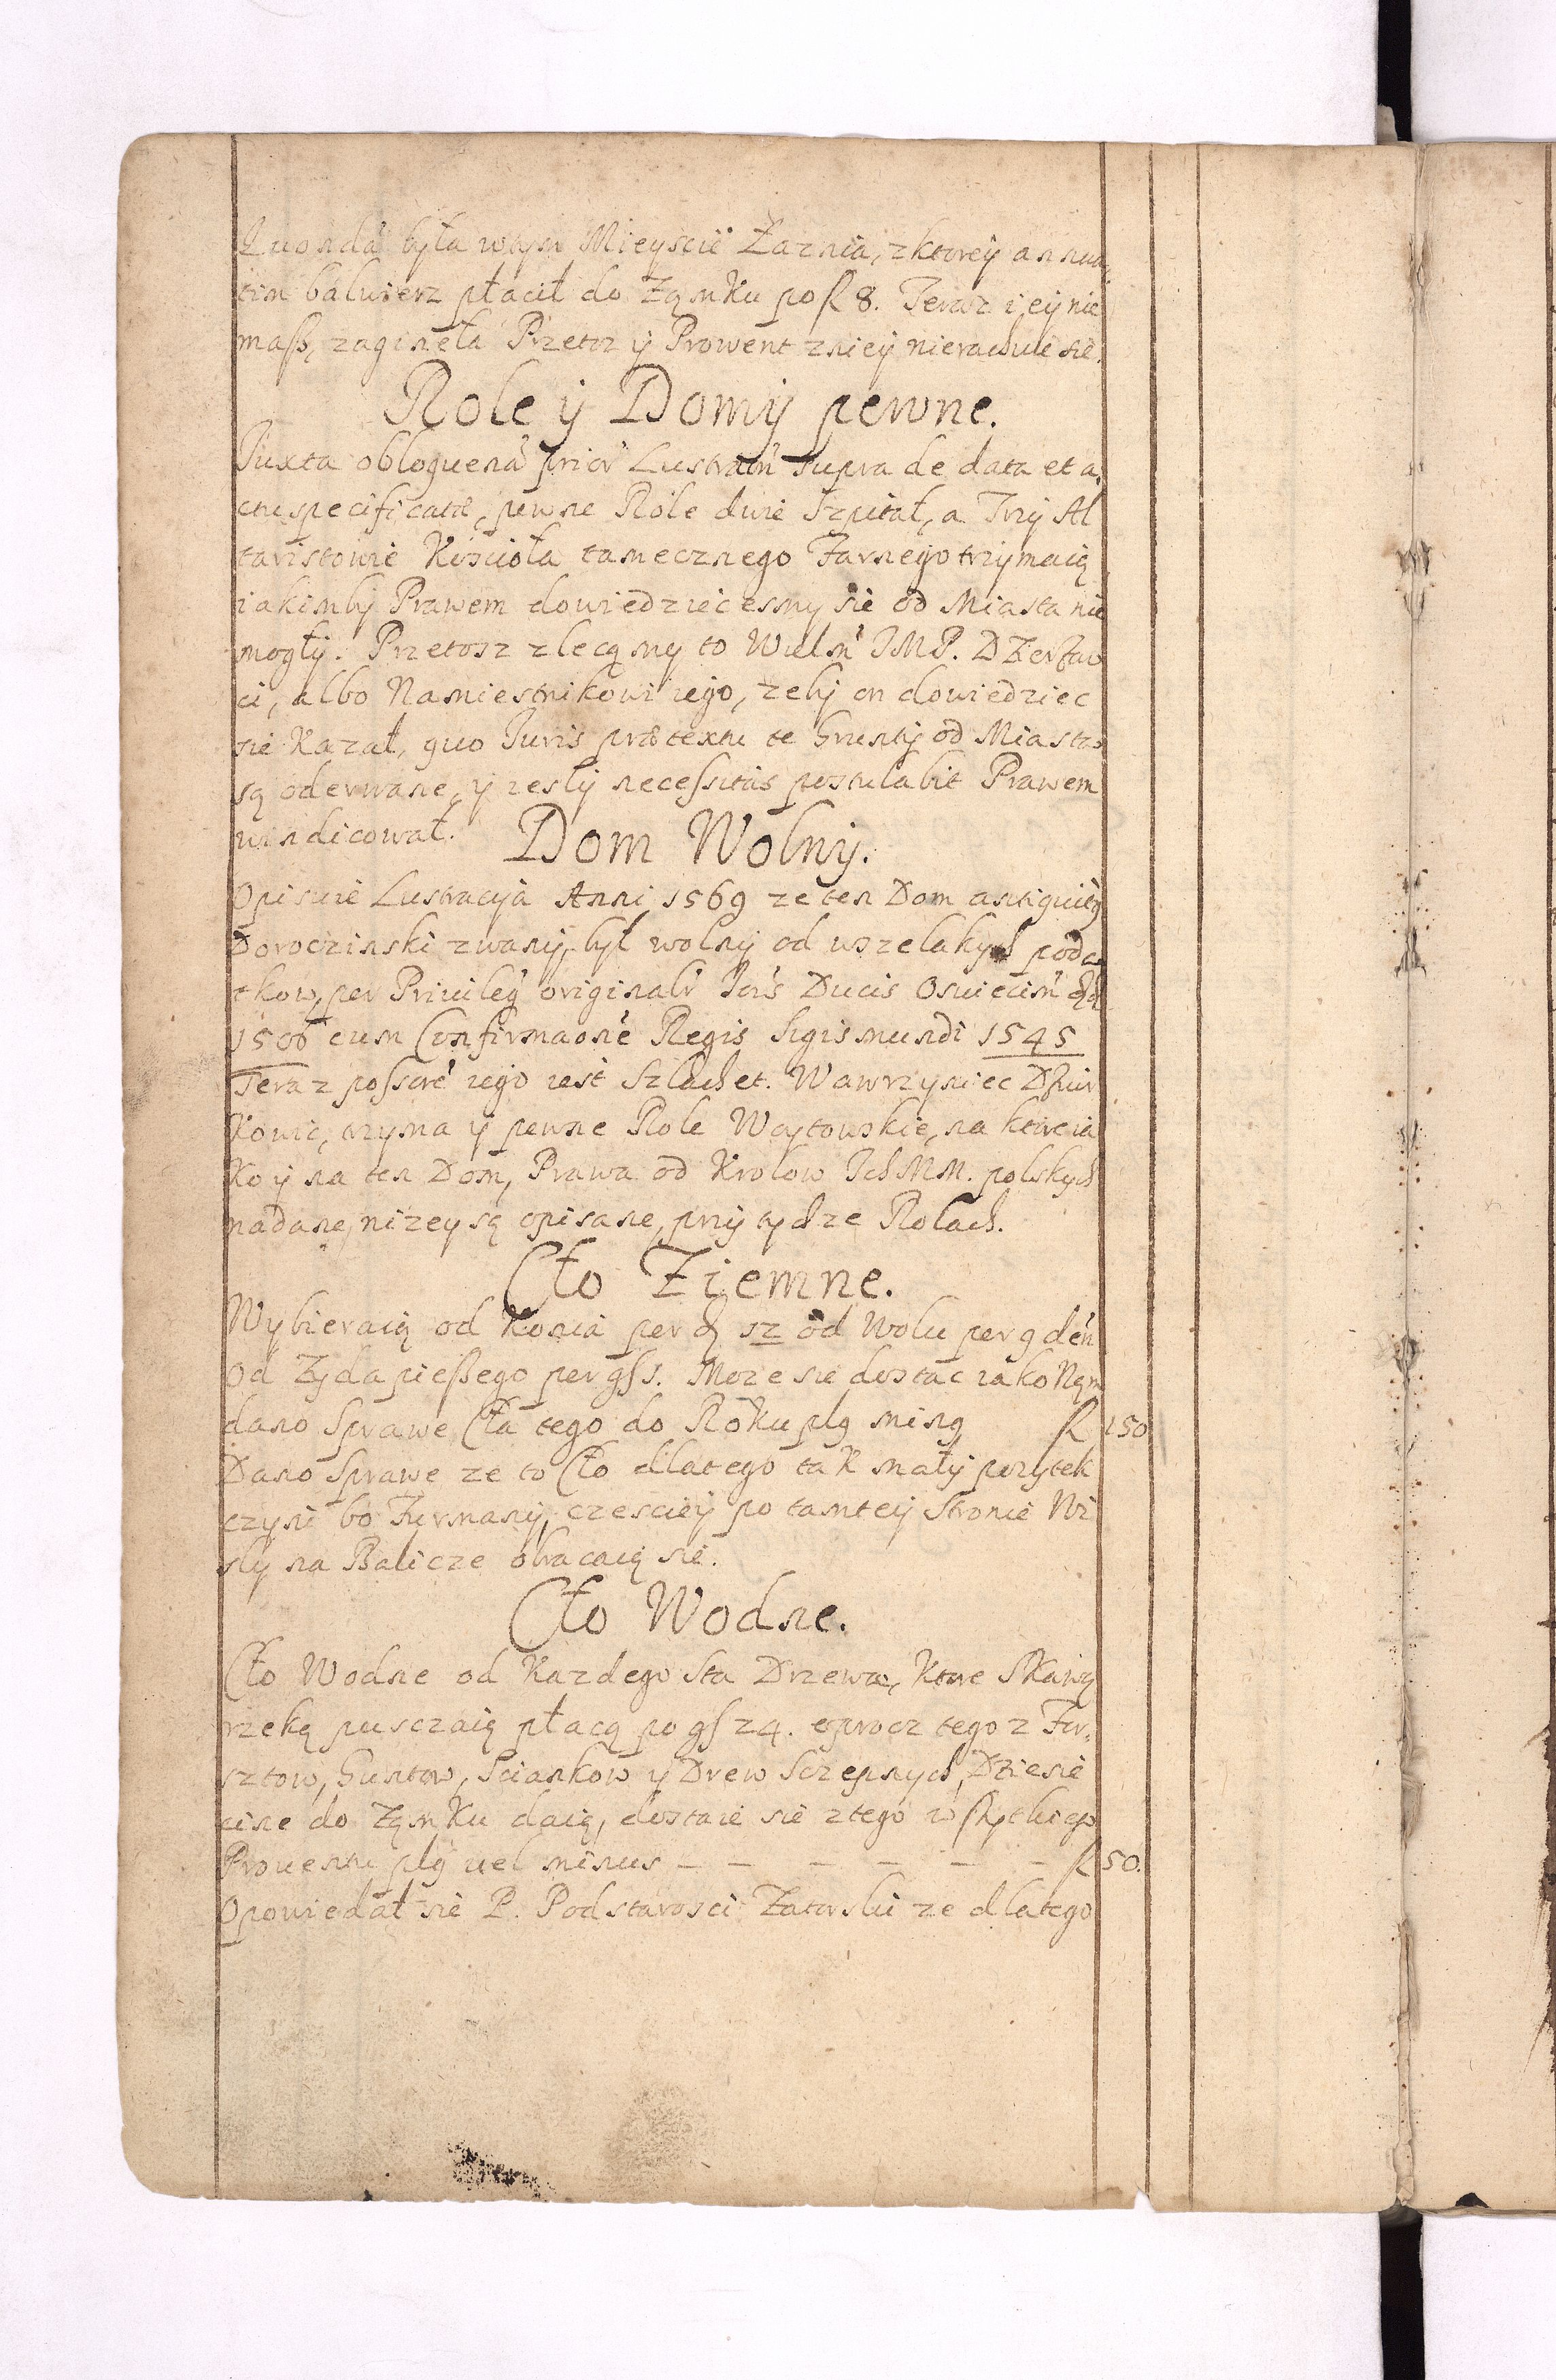 Quonda была w tym Mieyscie Łaznia, z ktorey annua,
tim balwierz płacił do Zamku po fl 8. Teraz iey nie
masz, zagineła Przetoz y Prowent z niey nierachuie sie.
Role y Domy pewne.
Juxta obloquenā prior Lustraōn supra de data et a,
ctu specificatæ, pewne Role dwie Szpitał, a Trzy Al
taristowie Koscioła tamecznego Farnego trzymaią
iakimby Prawem dowiedziec esmy sie od Miasta nie
mogły. Przetosz zlecamy to Wielm JMP. Dzerzaw
ci, albo Namiestnikowi iego, zeby on dowiedziec
sie kazał, quo Juris prætextu te Grunty od Miasta
są oderwane, y iesly necessitas postulabit Prawem
windicował.
Dom Wolny.
Opisuie Lustracyja Anni 1569 ze ten Dom antiquitg
Doroczinski zwany, był wolny od wszelakych poda
tkow, per Privileg originalr Jan's Ducis Oswiecim dd
1500 cum Confirmaone Regis Sigismundi 1545
Teraz possore iego iest Szlachet. Wawrzyniec
kowic, trzyma y pewne Role Woytowskie, na ktore ia
ko y na ten Dom, Prawa od Krolow Ich MM. polskych
nadane, nizey są opisane, przy tychze Rolach.
Cło Ziemne.
Wybieraią od Konia per d 12 od Wołu per 9 den
Od Zyda pieszego per gr 1. Moze sie dostac iako Nam
dano Sprawe Cła tego do Roku plg ming fl 150
Dano Sprawe ze to Cło dlatego tak mały pozytek
czyni bo Furmany czesciey po tamtey Stronie Wi
sły na Balicze obracaią sie.
Cło Wodne.
Cło Wodne od Kazdego Sta Drzewa, ktore Skawą
rzeką pusczaią płacą po gr 24. oprocz tego z Tar,
sztow, Guntow, Sciankow y Drew Sczepnych, Dziesie
cine do Zamku daią, dostaie sie z tego wszytkiego
Prouentu plg uel minus - - - - - - fl 50.
Opowiedał sie P. Podstarosci Zatorski ze dlatego